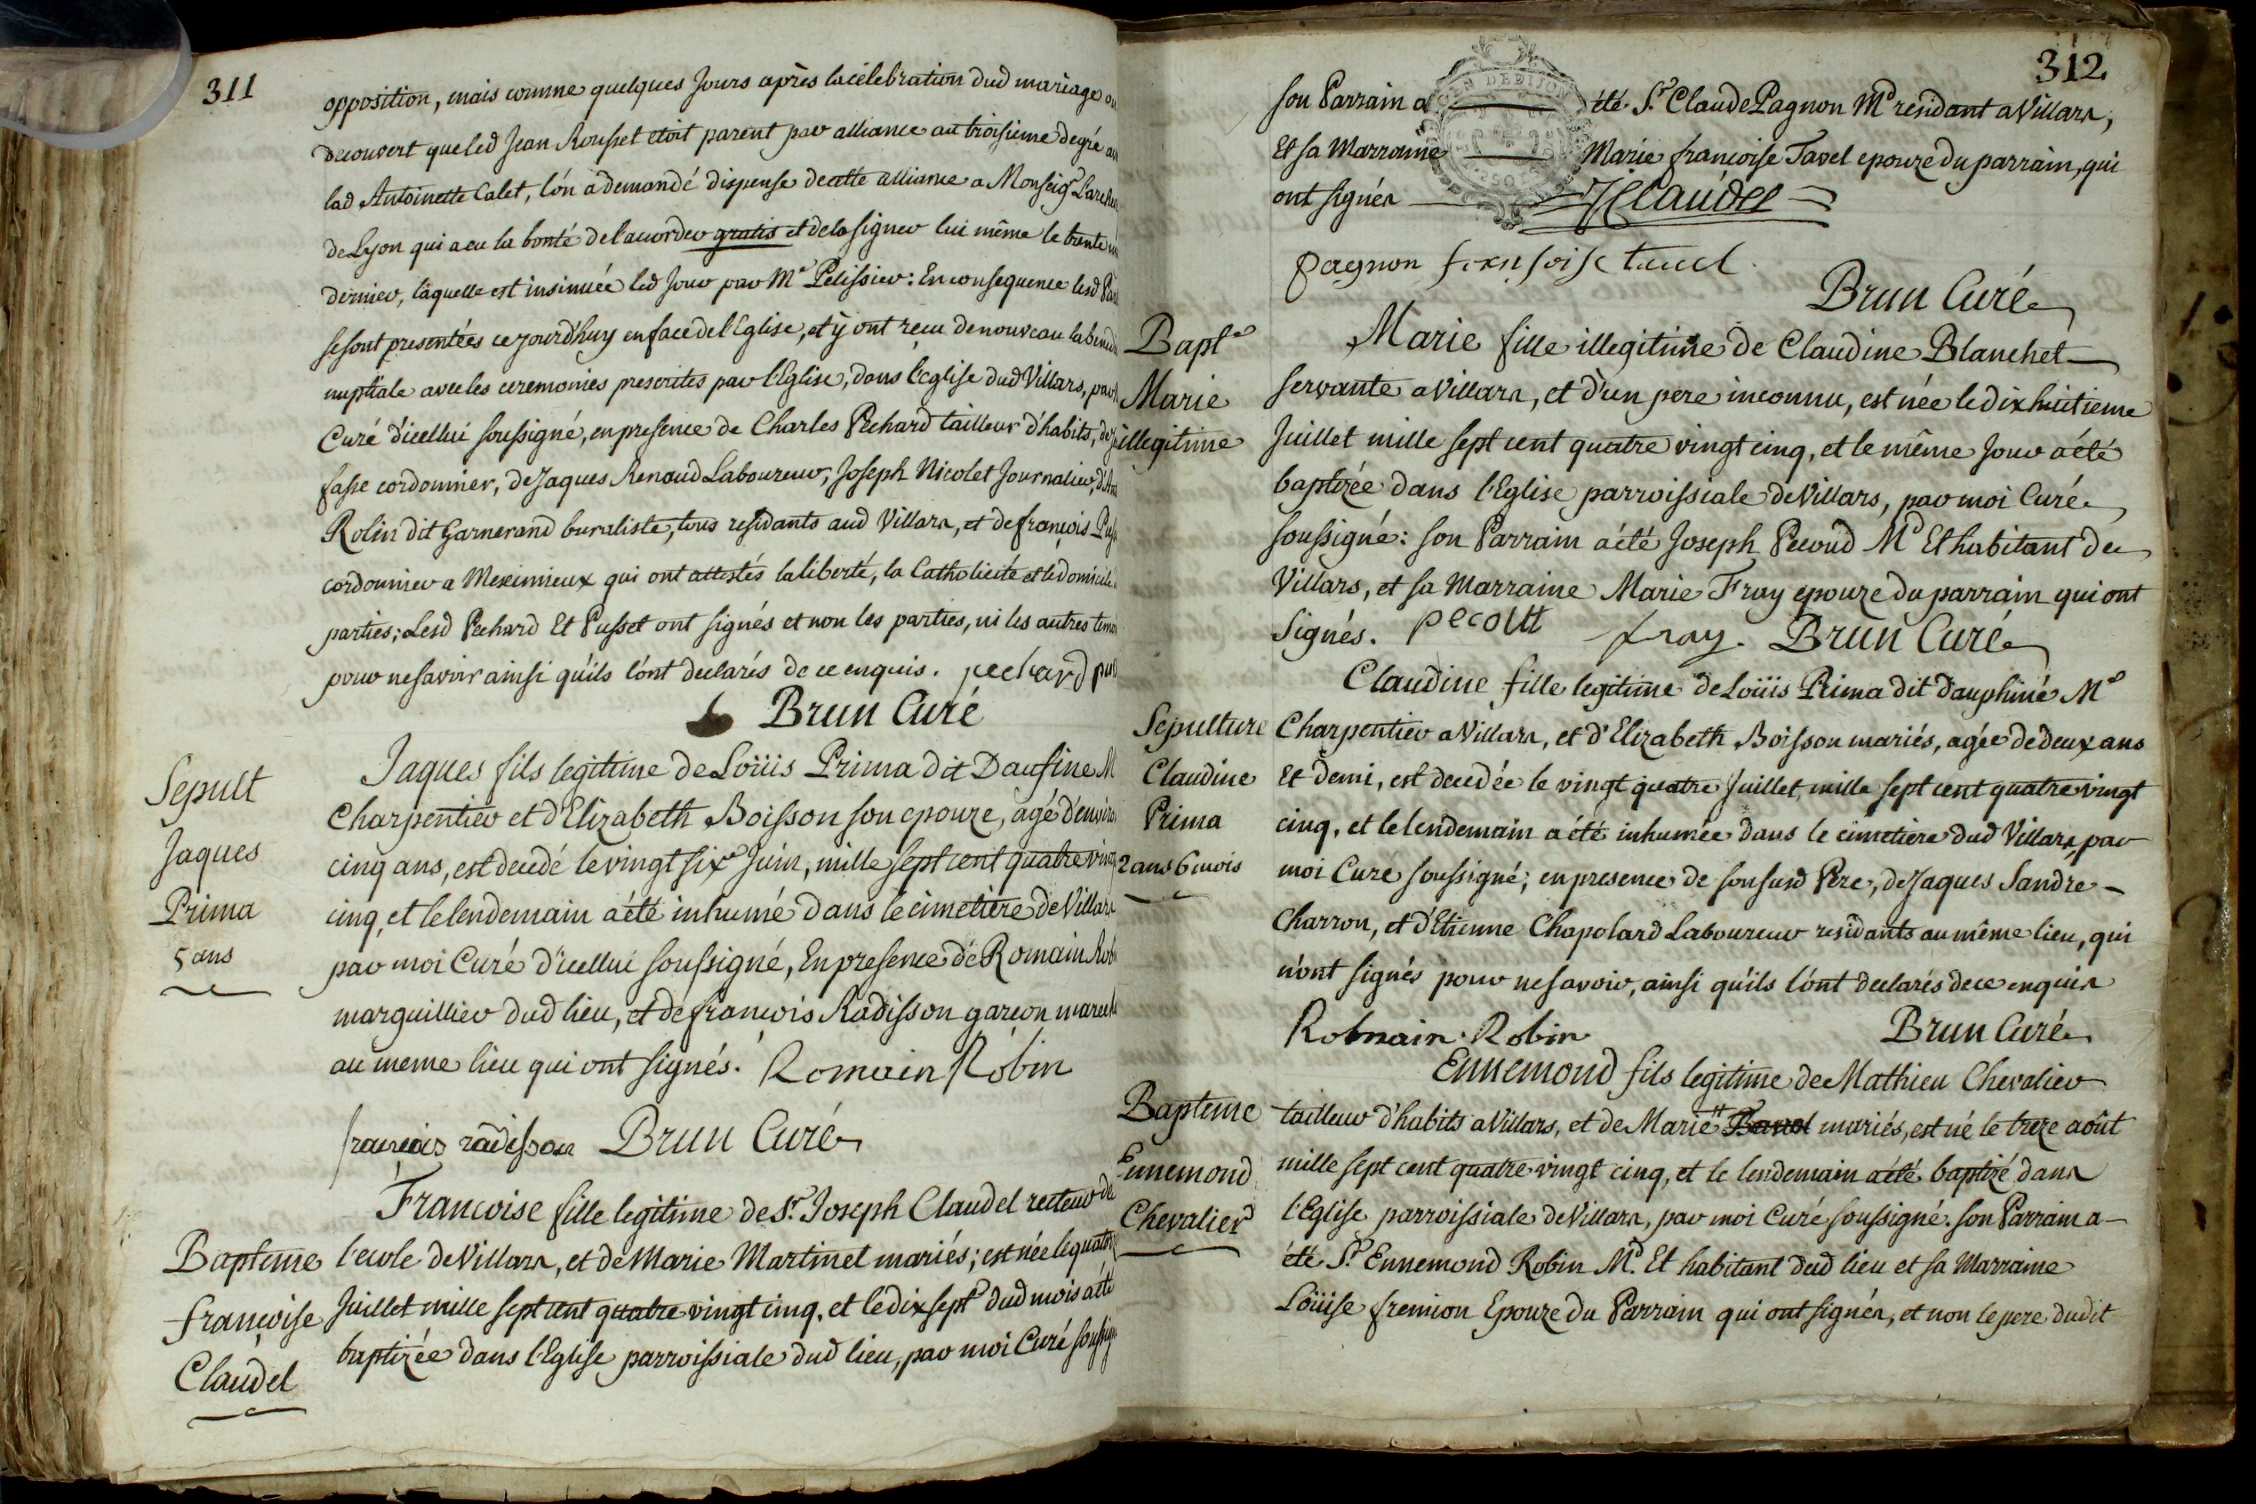 311
opposition, mais comme quelques Jours après la célébration dud mariage on
decouvert que led Jean Rousset etoit parent par alliance au troisieme degré
lad Antoinette Calet, l'on a demandé dispense de cette alliance a Monseigr
de Lyon qui a eu la bonté de l'accorder gratis et de la signer lui même le trente
dernier, laquelle est insinuée led Jour par Mr Pelissier: En consequence lesd
se sont presentées cejourd'huy en face de l'Eglise, et y ont recu de nouveau la
nuptiale avec les ceremonies prescrites par l'Eglise, dans l'Eglise dud Villars, par
Curé d'icellui soussigné, en presence de Charles Pechard tailleur d'habits,
fasse cordonnier, de Jaques Renaud Laboureur, Joseph Nicolet Journalier,
Rolin dit Garnerand buraliste, tous residants aud Villars, et de francois
cordonnier a Meximieux qui ont attestés la liberté, la Catholicité et le domicile
parties; Lesd Pechard Et Pusset ont signés et non les parties, ni les autres
pour ne savoir ainsi qu'ils l'ont declarés de ce enquis. pechard
Brun Curé
Sepult
Jaques
Prima
5 ans
Jaques fils legitime de Loüis Prima dit Daufine M
Charpentier et d'Elizabeth Boisson son epouze, agé d'environ
cinq ans, est decedé le vingt six Juin, mille sept cent quatre vingt
cinq, et le lendemain a été inhumé dans le cimetière de Villars
par moi Curé d'icellui soussigné, En presence de Romain Robin
marguillier dud lieu, et de francois Radisson garcon
au meme lieu qui ont signés. Romain Robin
francois radisson Brun Curé
Bapteme
françoise
Claudel
Francoise fille legitime de Sr. Joseph Claudel recteur de
l'ecole de Villars, et de Marie Martinet mariés; est née le quatorze
Juillet mille sept cent quatre vingt cinq, et le dix sept dud mois a été
baptizée dans l'Eglise parroissiale dud lieu, par moi Curé
312
son Parrain a été Sr Claude Pagnon Md residant a Villars,
Et sa Marraine Marie francoise Tavel epouze du parrain, qui
ont signés Claudel
pagnon fransoise tavel
Brun Curé
Bapte
Marie
illegitime
Marie fille illegitime de Claudine Blanchet
servante a Villars, et d'un pere inconnu, est née le dix huitieme
Juillet mille sept cent quatre vingt cinq, et le même Jour a été
baptizée dans l'Eglise parroissiale de Villars, par moi Curé
soussigné: son Parrain a été Joseph Pecoud Md Et habitant de
Villars, et sa Marraine Marie Fray epouze du parrain qui ont
signés. pecout fray. Brun Curé
Sepulture
Claudine
Prima
2 ans 6 mois
Claudine fille legitime de Loüis Prima dit Dauphiné Me
Charpentier a Villars, et d'Elizabeth Boisson mariés, agée de deux ans
Et demi, est decedée le vingt quatre Juillet mille sept cent quatre vingt
cinq, et le lendemain a été inhumée dans le cimetiere dud Villars, par
moi Curé soussigné; en presence de son susd Pere, de Jaques Sandre
Charron, et d'Etienne Chapolard Laboureur residants au même lieu, qui
n'ont signés pour ne savoir, ainsi qu'ils l'ont declarés de ce enquis
Romain Robin Brun Curé
Bapteme
Ennemond
Chevalier
Ennemond fils legitime de Mathieu Chevalier
tailleur d'habits a Villars, et de Marie mariés, est né le treze août
mille sept cent quatre vingt cinq, et le lendemain a été baptizé dans
l'Eglise parroissiale de Villars, par moi Curé soussigné: son Parrain a
été Sr. Ennemond Robin Md. Et habitant dud lieu et sa Marraine
Loüise fremion Epouze du Parrain qui ont signés, et non le pere dudit